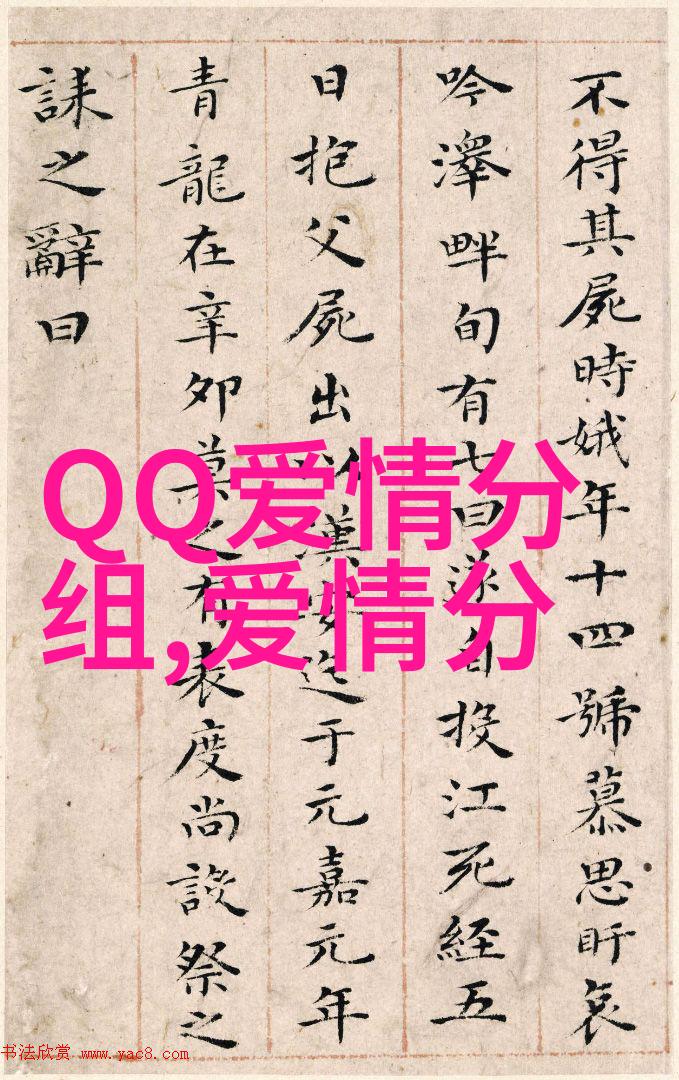 不得其屍時娥年十四號慕思盱哀
吟澤畔旬有七日遂自投江死經五
日抱父屍出以漢安迄于元嘉元年
青龍在辛夘莫之有表度尚設祭之
誄之辭曰
QQ爱情分
组,爱情分
书法欣赏 www.yac8.com